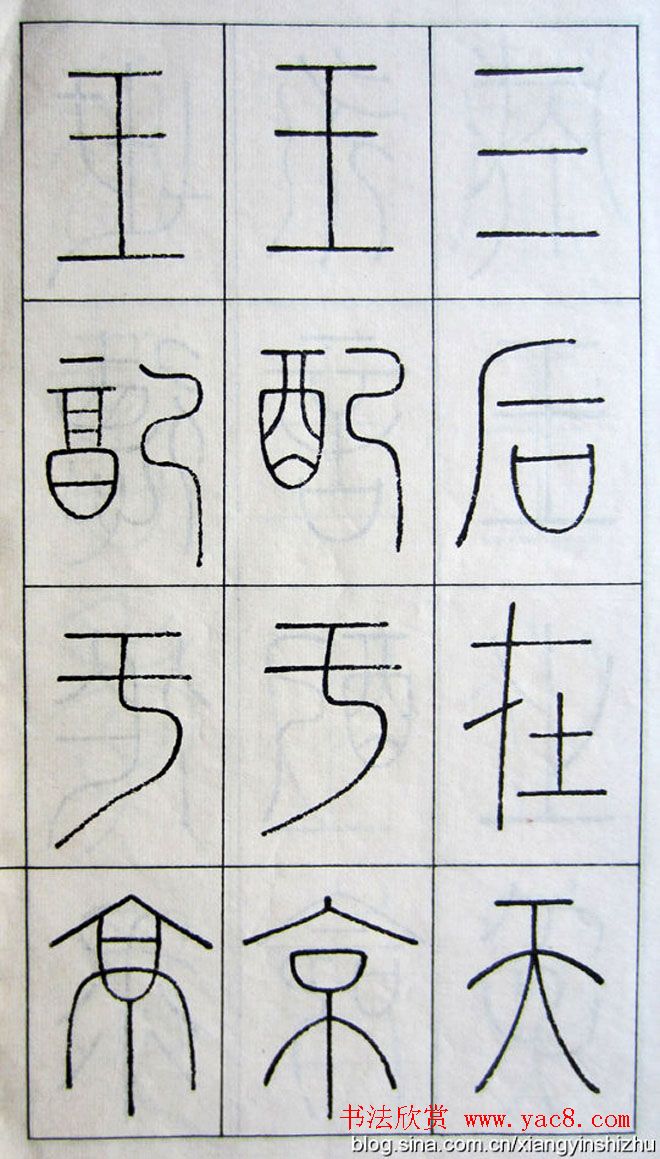 三后在天
王配于京
王配于京
书法欣赏 www.yac8.com
blog.sina.com.cn/xiangyinshizhu